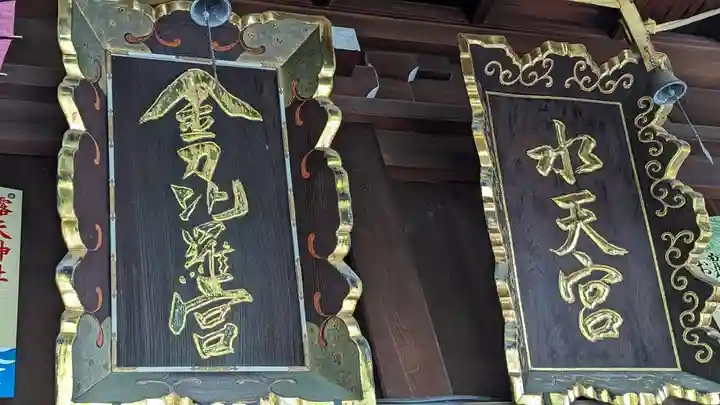 金刀比羅宮
水天宮
露天神社